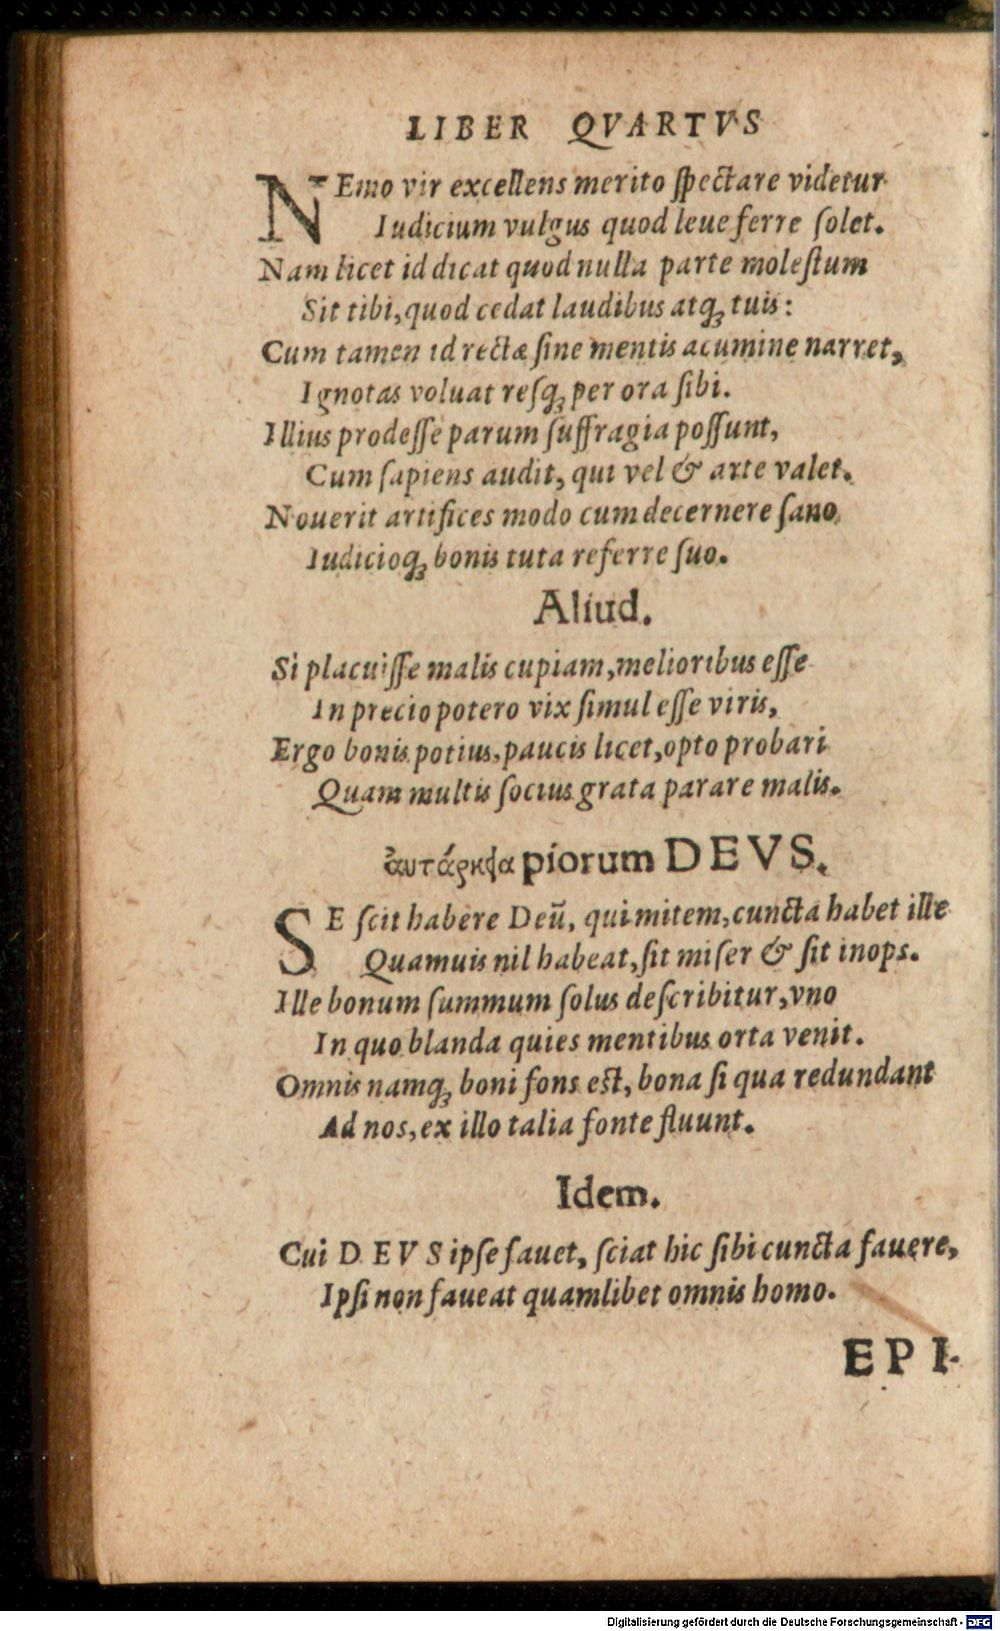 LIBER QVARTVS
NEmo vir excellens merito ſpectare videtur
Iudicium vulgus quod leue ferre ſolet.
Nam licet id dicat quod nulla parte moleſtum
Sit tibi, quod cedat laudibus atq́ꝫ tuis:
Cum tamen id rectæ ſine mentis acumine narret,
Ignotas voluat reſqꝫ per ora ſibi.
Illius prodeſſe parum ſuffragia poſſunt,
Cum ſapiens audit, qui vel & arte valet.
Nouerit artifices modo cum decernere ſano
Iudicioqꝫ bonis tuta referre ſuo.
Aliud.
Si placuiſſe malis cupiam, melioribus eſſe
In precio potero vix ſimul eſſe viris,
Ergo bonis potius, paucis licet, opto probari
Quam multis ſocius grata parare malis.
ἀυτάρκεια piorum DEVS.
SE ſcit habere Deū, qui mitem, cuncta habet ille
Quamuis nil habeat, ſit miſer & ſit inops.
Ille bonum ſummum ſolus deſcribitur, vno
In quo blanda quies mentibus orta venit.
Omnis namqꝫ boni fons eſt, bona ſi qua redundant
Ad nos, ex illo talia fonte fluunt.
Idem.
Cui DEVS ipſe fauet, ſciat hic ſibi cuncta fauere,
Ipſi non faueat quamlibet omnis homo.
EPI-
Digitalisierung gefördert durch die Deutsche Forschungsgemeinschaft - DFG